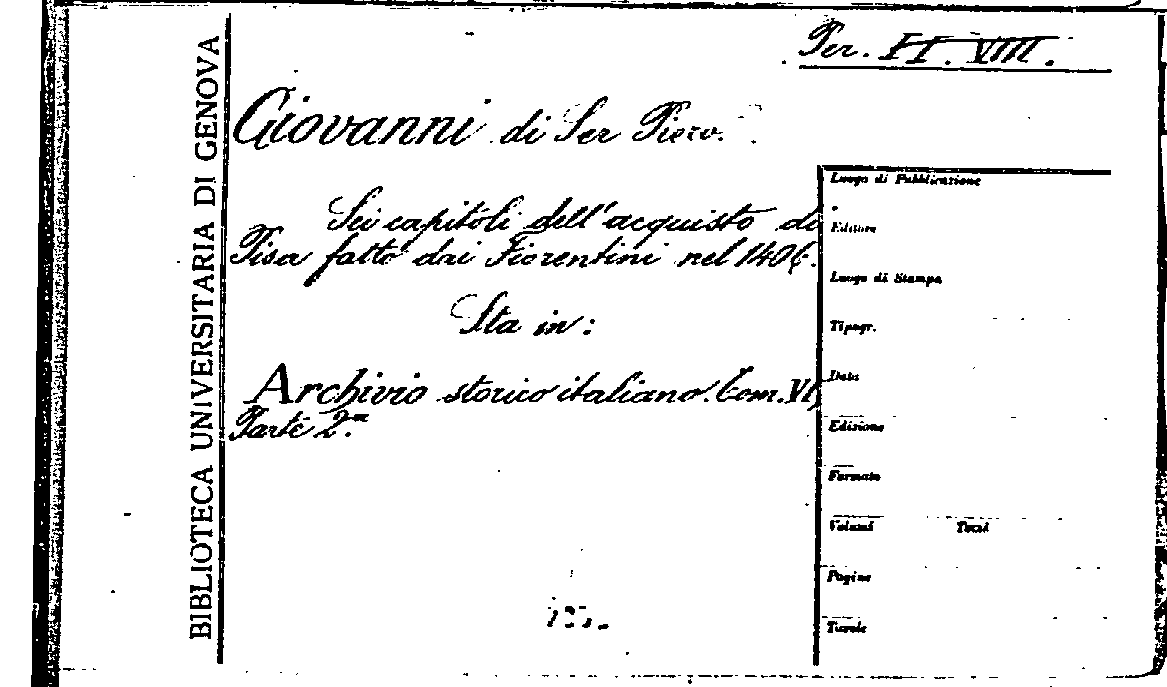 Per. II. VIII.
BIBLIOTECA UNIVERSITARIA DI GENOVA
Giovanni di Ser Piero.
Sei capitoli dell'acquisto di
Pisa fatto dai Fiorentini nel 1406.
Sta in:
Archivio storico italiano. Tom. VI,
Parte 2.ª
Luogo di Pubblicazione
Editore
Luogo di Stampa
Tipogr.
Data
Edizione
Formato
Volumi Tomi
Pagine
Tavole